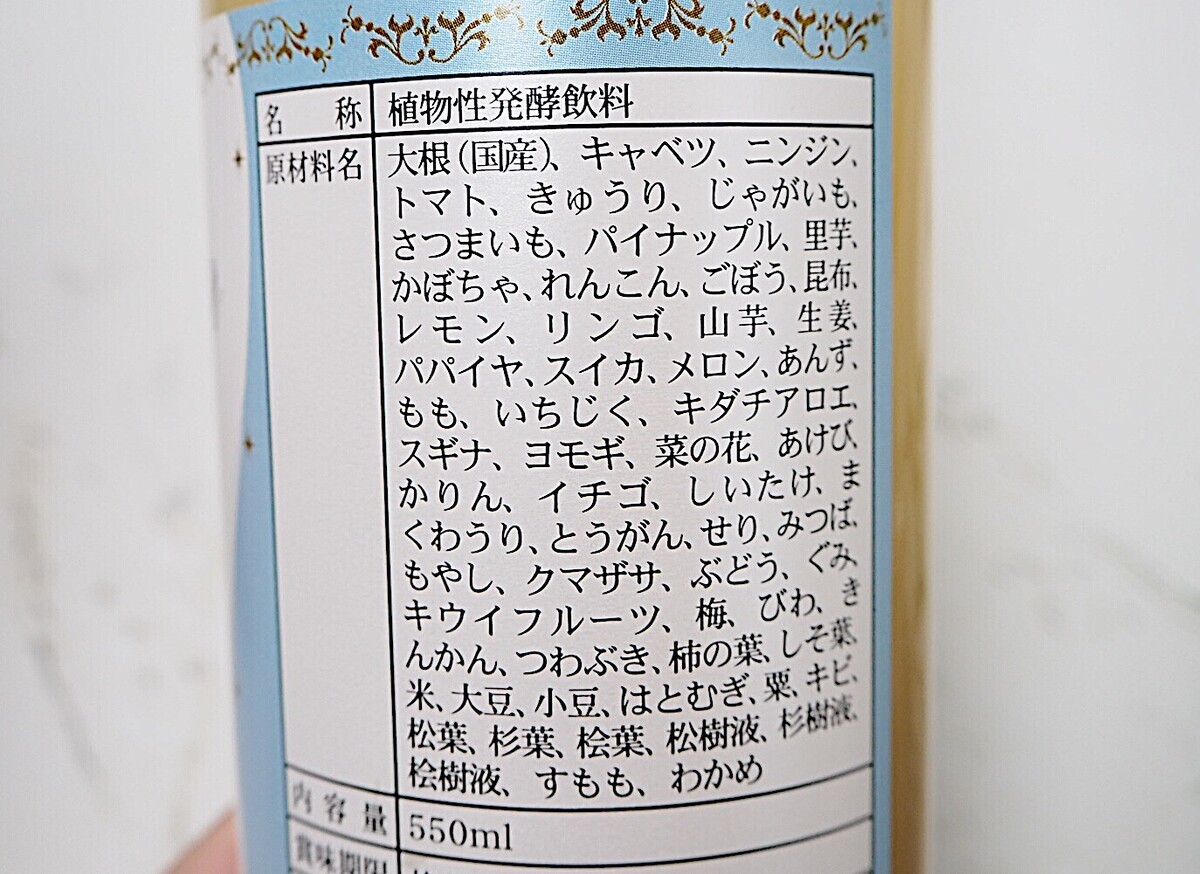 名称 植物性発酵飲料
原材料名 大根(国産)、キャベツ、ニンジン、
トマト、きゅうり、じゃがいも、
さつまいも、パイナップル、里芋、
かぼちゃ、れんこん、ごぼう、昆布、
レモン、リンゴ、山芋、生姜、
パパイヤ、スイカ、メロン、あんず、
もも、いちじく、キダチアロエ、
スギナ、ヨモギ、菜の花、あけび、
かりん、イチゴ、しいたけ、ま
くわうり、とうがん、せり、みつば、
もやし、クマザサ、ぶどう、ぐみ、
キウイフルーツ、梅、びわ、き
んかん、つわぶき、柿の葉、しそ葉、
米、大豆、小豆、はとむぎ、粟、キビ、
松葉、杉葉、桧葉、松樹液、杉樹液、
桧樹液、すもも、わかめ
内容量 550ml
賞味期限